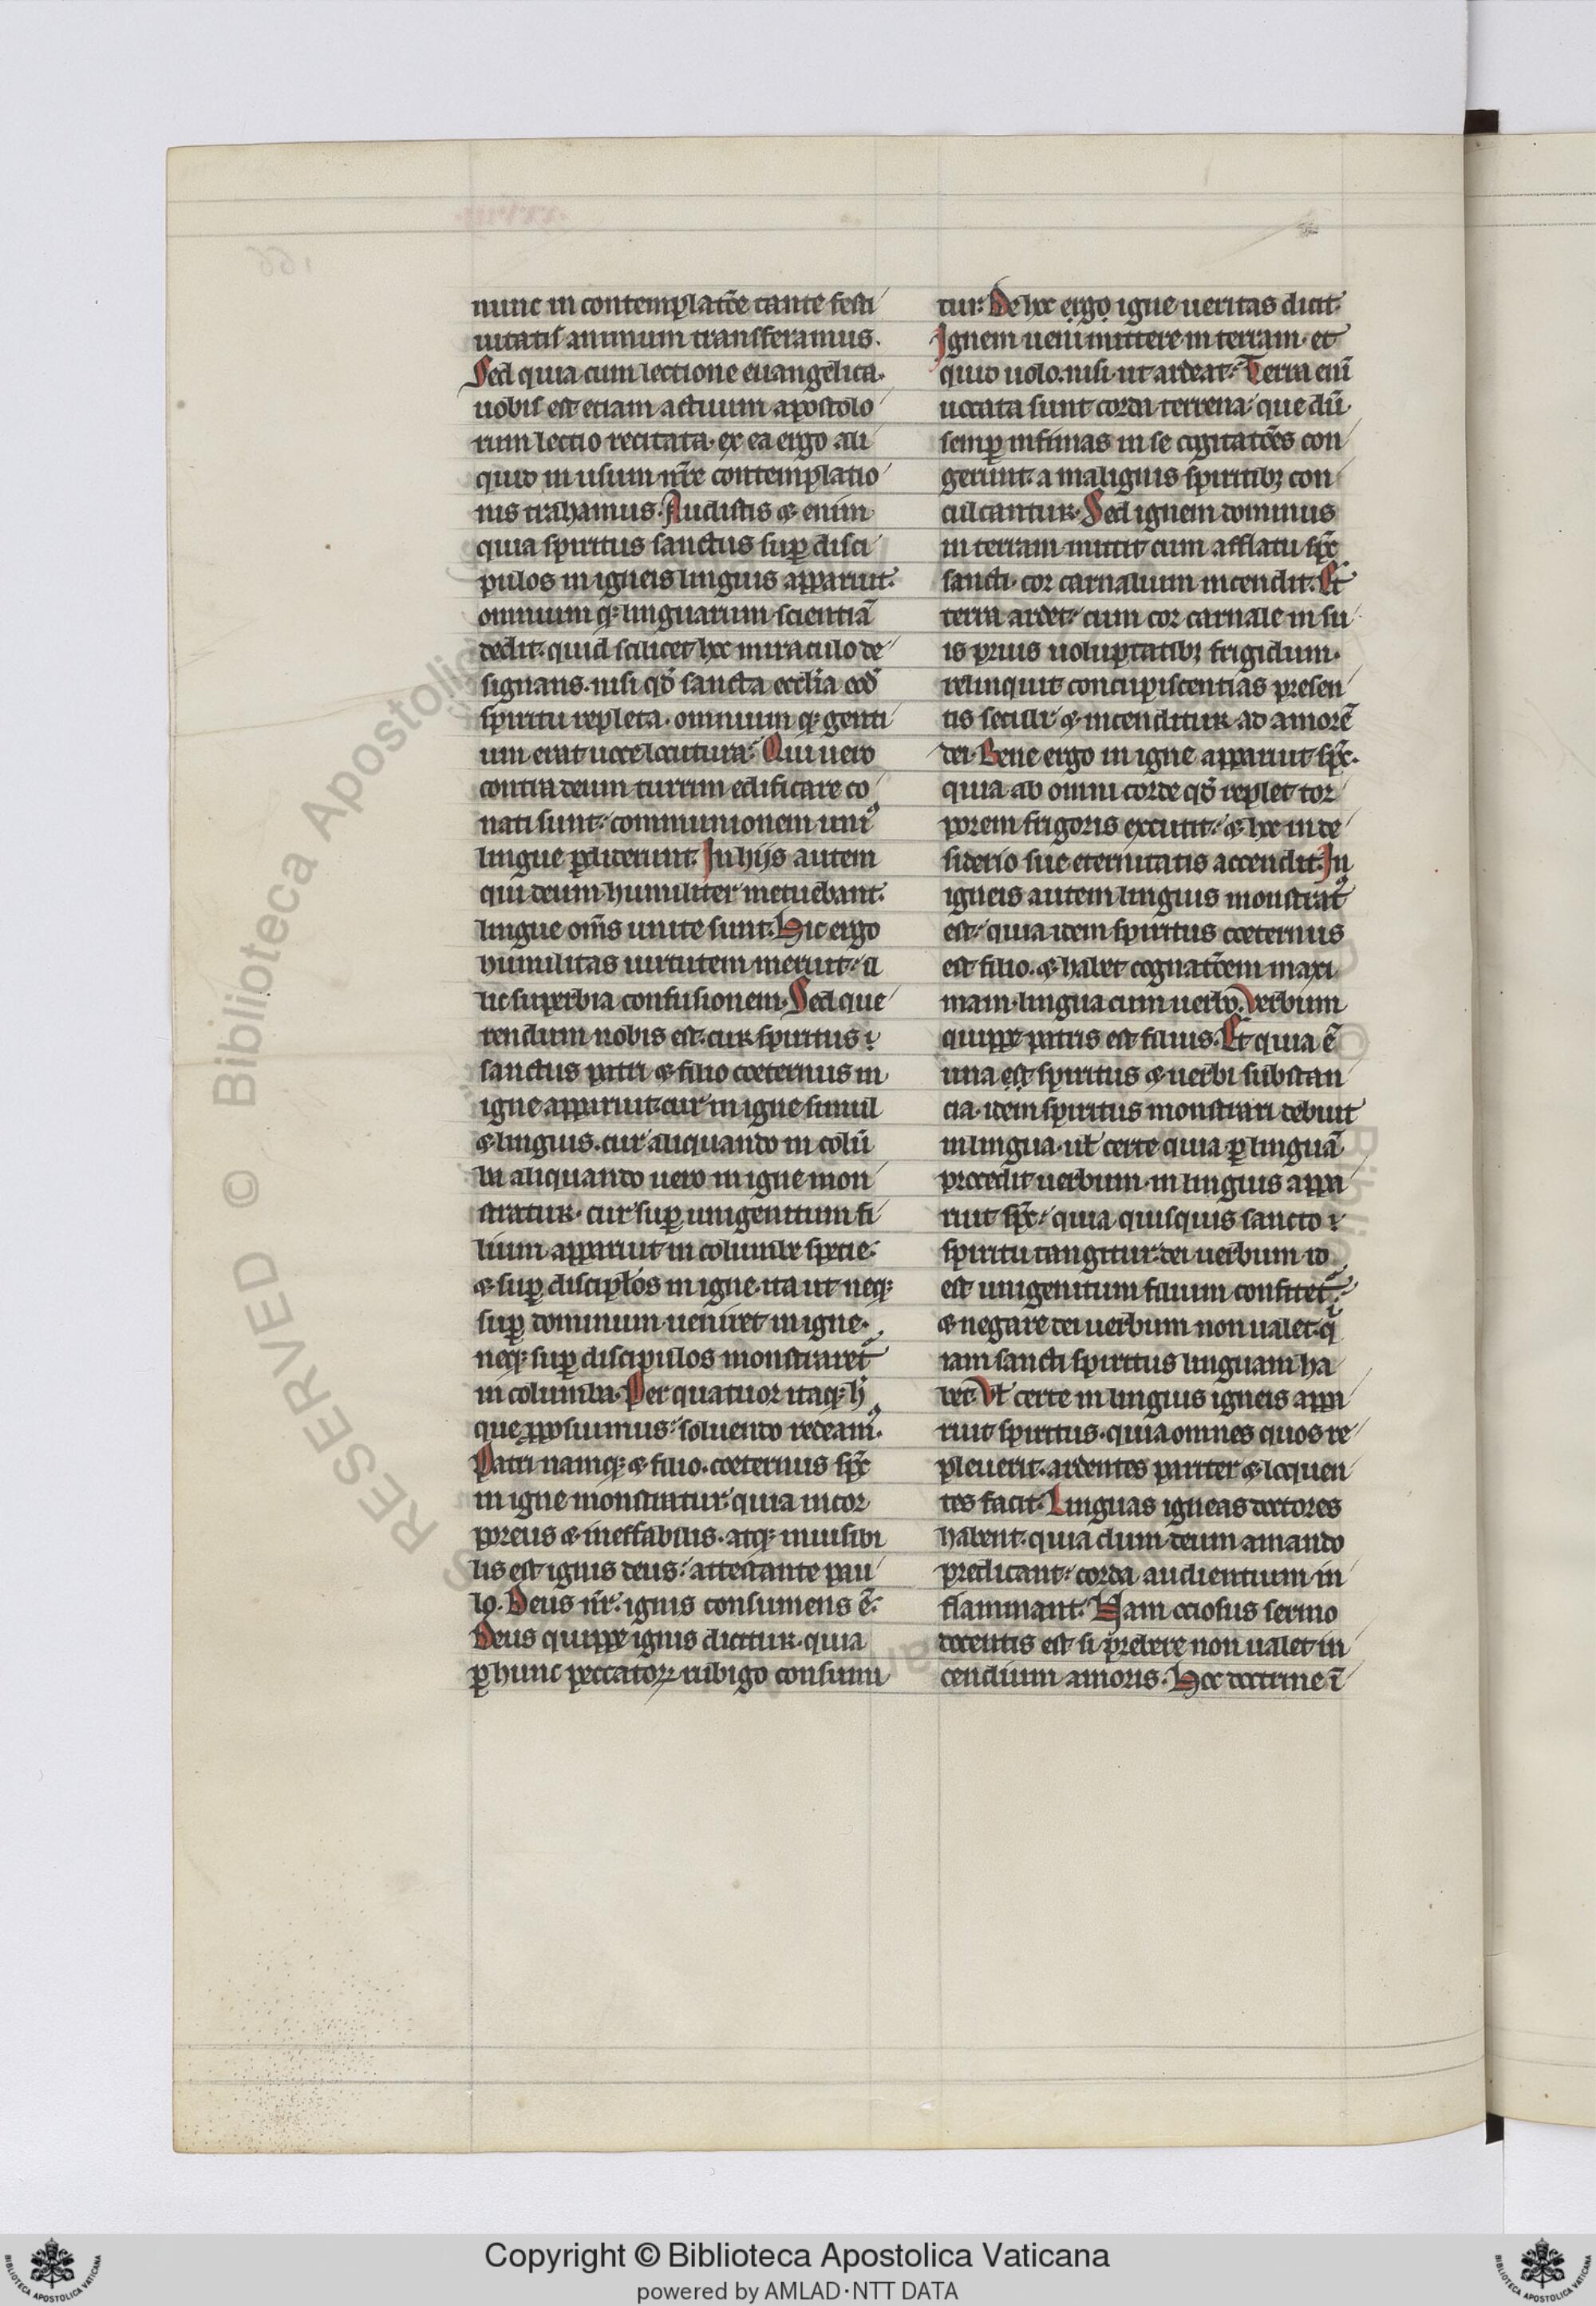 nunc in contemplatiõe tante festi
uitatis animum transferamus.
Sed quia cum lectione euangelica.
uobis est etiam actuum apostolo
rum lectio recitata. ex ea ergo ali
quid in usum nr̃e contemplatio
nis trahamus. Audistis & enim
quia spiritus sanctus sup̱ disci
pulos in igneis linguis apparuit.
omnium q; linguarum scientiã
dedit. quid scilicet hoc miraculo de
signans. nisi qđ sancta eccl'ia eođ
spiritu repleta. omnium q; genti
um erat uoce locutura. Qui uero
contra deum turrim edificare co
nati sunt: communionem uni᾽
lingue p̱diderunt. In hijs autem
qui deum humiliter metuebant.
lingue om̃s unite sunt. Hic ergo
humilitas uirtutem meruit: il
lic superbia confusionem. Sed que
rendum nobis est. cur spiritus
sanctus patri & filio coeternus in
igne apparuit. cur in igne simul
& linguis. cur aliquando in colũ
ba aliquando uero in igne mon
stratur. cur sup̱ unigenitum fi
lium apparuit in columbe specie:
& sup̱ discipl'os in igne. ita ut neq;
sup̱ dominum ueniret in igne.
neq; sup̱ discipulos monstraret᾽
in columba. Per quatuor itaq; h̾
que p̱posuimus: soluendo redeam᾽.
Patri namq; & filio. coeternus sp̃c
in igne monstratur. quia incor
poreus & ineffabilis. atq; inuisibi
lis est ignis deus: attestante pau
lo. Deus nr̃. ignis consumens ẽ.
Deus quippe ignis dicitur. quia
p̱ hunc peccatoꝝ rubigo consumi
tur. De hoc ergo igne ueritas dicit.
Ignem ueni mittere in terram. et
quid uolo. nisi ut ardeat. Terra enĩ
uocata sunt corda terrena: que dũ
semp̱ infimas in se cogitatiões con
gerunt. a malignis spiritibꝫ con
culcantur. Sed ignem dominus
in terram mittit cum afflatu sp̃c
sancti. cor carnalium incendit. Et
terra ardet: cum cor carnale in su
is prius uoluptatibꝫ frigidum.
relinquit concupiscentias presen
tis seculi: & incenditur ad amorẽ
dei. Bene ergo in igne apparuit sp̃c.
quia ab omni corde qđ replet tor
porem frigoris excutit: & hoc in de
siderio sue eternitatis accendit. In
igneis autem linguis monstrat᾽
est: quia idem spiritus coeternus
est filio. & habet cognatiõem maxi
mam. lingua cum uerbo. Verbum
quippe patris est filius. Et quia ẽ
una est spiritus & uerbi substan
cia. idem spiritus monstrari debuit
in lingua. uł certe quia p̱ linguã
procedit uerbum. in linguis appa
ruit sp̃c: quia quisquis sancto
spiritu tangitur. dei uerbum id
est unigenitum filium confitet᾽:
& negare dei uerbum non ualet. q̾
iam sancti spiritus linguam ha
bet. Vł certe in linguis igneis appa
ruit spiritus. quia omnes quos re
pleuerit. ardentes pariter & loquen
tes facit. Linguas igneas doctores
habent. quia dum deum amando
predicant: corda audientium in
flammant. Nam ociosus sermo
docentis est si prebere non ualet in
cendium amoris. Hoc doctrine ĩ
Copyright © Biblioteca Apostolica Vaticana
powered by AMLAD·NTT DATA